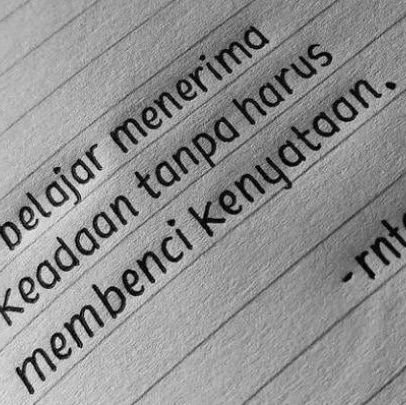 belajar menerima
keadaan tanpa harus
membenci kenyataan.
-rnt